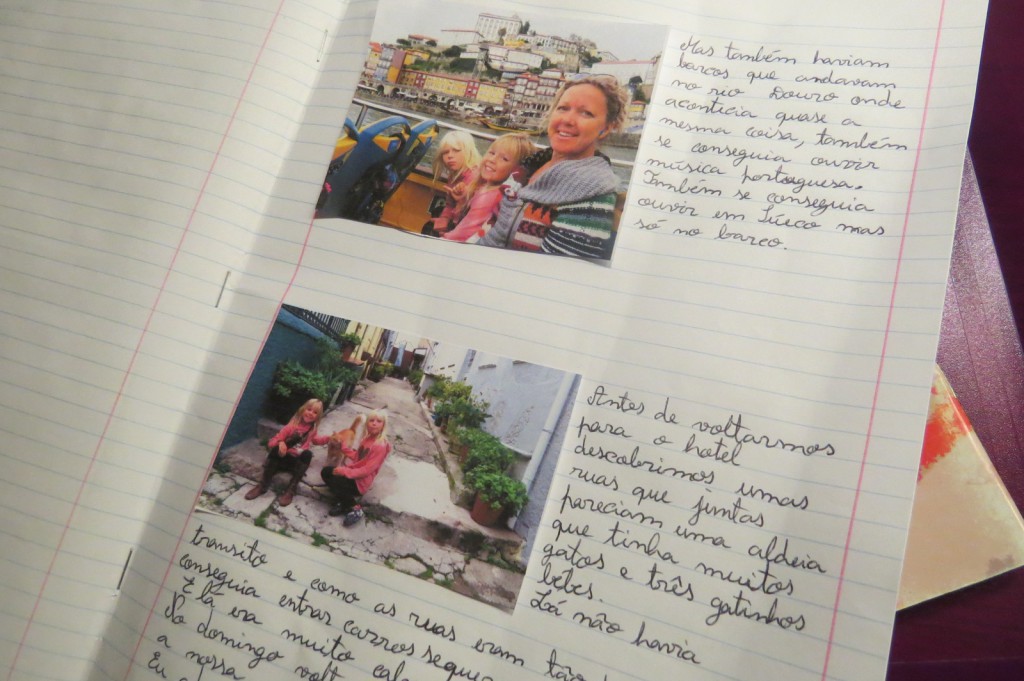 Mas também haviam
barcos que andavam
no rio Douro onde
aconticia quase a
mesma coisa, também
se conseguia ouvir
música portoguesa.
Também se conseguia
ouvir em Súeco mas
só no barco.
Antes de voltarmos
para o hotel
descobrimos umas
ruas que juntas
pareciam uma aldeia
que tinha muitos
gatos e três gatinhos
bébes.
Lá não havia
transito e como as ruas eram tão
conseguia entrar carros sequer
E lá era muito cal
No domingo volt
a nossa
Eu